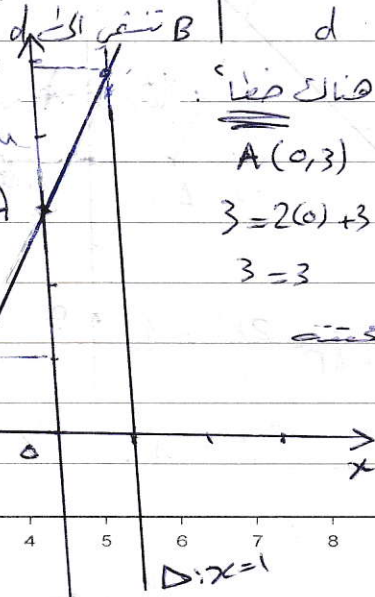 B تنتمي إلى d
d
هناك خطأ:
A (0,3)
3 = 2(0) + 3
3 = 3
A
0
x
4 5 6 7 8
D: x=1